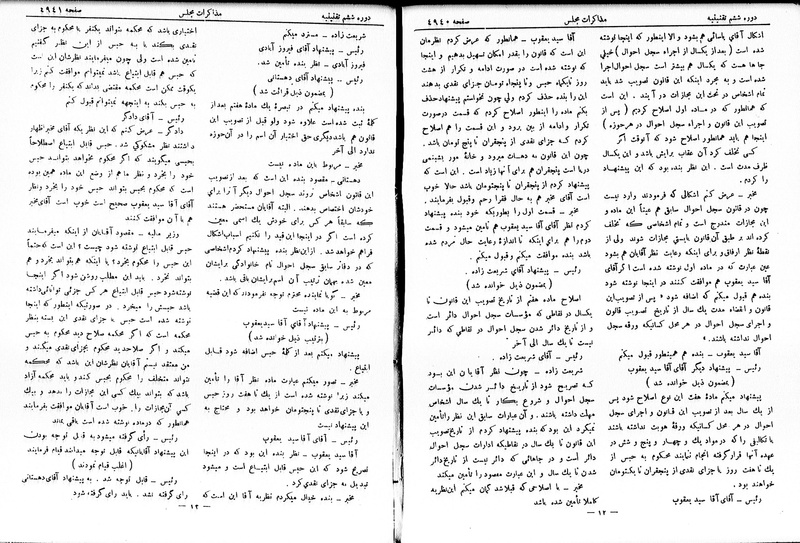 دوره ششم تقنینیه مذاکرات مجلس صفحه ۴۹۴۰
اشکال آقای یاسائی هم بشود و الا اینطور که اینجا نوشته
شده است (بعد از یکسال از اجراء سجل احوال) خیلی
جاها هست که یکسال هم بیشتر است سجل احوال اجرا
شده است و به مجرد اینکه این قانون تصویب شد باید
تمام اشخاص در تحت این مجازات در آیند . این است
که همانطور که در ماده اول اصلاح کردیم (پس از
تصویب این قانون و اجراء سجل احوال در هر حوزه)
اینجا هم باید همانطور اصلاح شود که آنوقت اگر
کسی تخلف کرد آن عقاب برایش باشد و این یکسال
ظرف مدت است . این نظر بنده بود که این پیشنهاد
را کردم .
مخبر ـ عرض کنم اشکالی که فرمودند وارد نیست
چون در قانون سجل احوال سابق هم عیناً این ماده و
این مجازات مندرج است و تمام اشخاصی که تخلف
کرده اند بر طبق آن قانون بایستی مجازات شوند ولی از
نقطه نظر ارفاق و برای اینکه رعایت نظر آقایان هم بشود
عین عبارت که در ماده اول نوشته شده است اگر آقای
آقا سید یعقوب هم موافقت کنند در اینجا نوشته شود
بنده هم قبول میکنم که اضافه شود « پس از تصویب این
قانون و انقضاء مدت یک سال از تاریخ تصویب قانون
و اجرای سجل احوال در هر محل کسانیکه ورقه سجل
احوال نداشته باشند »
آقا سید یعقوب ـ بنده هم همینطور قبول میکنم
رئیس ـ پیشنهاد دیگر آقای آقا سید یعقوب
(بمضمون ذیل خوانده شد)
پیشنهاد میکنم مادهٔ هفت این نوع اصلاح شود پس
از یک سال بعد از تصویب این قانون و اجرای سجل
احوال در هر محل کسانیکه ورقهٔ هویت نداشته باشند
یا تکالیفی را که در مواد یک و چهار و پنج و شش در
عهدهٔ آنها قرار گرفته انجام نمایند محکوم به حبس از
یک تا هفت روز یا جزای نقدی از پنجقران تا یکتومان
خواهند بود .
رئیس ـ آقای آقا سید یعقوب
آقا سید یعقوب ـ همانطور که عرض کردم نظرمان
این است که قانون را بقدر امکان تسهیل بدهیم و اینجا
که نوشته شده است در صورت ادامه و تکرار از هشت
روز تا یکماه حبس و تا پنجاه تومان جزای نقدی بدهند
این را بنده حذف کردم ولی چون نخواستم پیشنهاد حذف
بکنم ماده را اینطور اصلاح کردم که قسمت در صورت
تکرار و ادامه از بین برود و این قسمت را هم اصلاح
کردم که جزای نقدی از پنجقران تا پنج تومان باشد .
چون این قانون به دهات میرود و خانهٔ مور بشبنمی
دریا است پنجقران هم برای آنها زیاد است . این است که
پیشنهاد کردم از پنجقران تا پنجتومان باشد حالا خوب
است آقای مخبر هم به حال فقرا رحم و قبول بفرمایند .
مخبر ـ قسمت اول را بطوریکه خود بنده پیشنهاد
کردم نظر آقای آقا سید یعقوب هم تأمین میشود و قسمت
دوم را هم برای اینکه تا اندازهٔ رعایت حال مردم شده
باشد بنده موافقت میکنم و قبول میکنم .
رئیس ـ پیشنهاد آقای شریعت زاده .
(بمضمون ذیل خوانده شد)
اصلاح ماده هفتم از تاریخ تصویب این قانون تا
یکسال در نقاطی که مؤسسات سجل احوال دائر است
و از تاریخ دائر شدن سجل احوال در نقاطی که دائر
نیست تا یک سال الی آخر .
رئیس ـ آقای شریعت زاده .
شریعت زاده ـ چون نظر آقایان این بود
که تصریح شود از تاریخ دائر شدن مؤسسات
سجل احوال و شروع بکار تا یک سال اشخاص
مهلت داشته باشند . و آن عبارات سابق این نظر را تأمین
نمیکرد این بود که بنده پیشنهاد کردم از تاریخ تصویب
این قانون تا یک سال در نقاطیکه ادارات سجل احوال
دائر است و در جاهائی که دائر نیست از تاریخ دائر
شدن تا یک سال و این عبارت مقصود را تأمین میکند
مخبر ـ با اصلاحی که قبلا شد گمان میکنم این نظریه
کاملا تأمین شده باشد
ـ ۱۲ ـ
دوره ششم تقنینیه مذاکرات مجلس صفحه ۴۹۴۱
شریعت زاده ـ مسترد میکنم
رئیس ـ پیشنهاد آقای فیروز آبادی
فیروز آبادی ـ نظر بنده تأمین شد .
رئیس ـ پیشنهاد آقای دهستانی
(بمضمون ذیل قرائت شد)
بنده پیشنهاد میکنم در تبصرهٔ یک مادهٔ هفتم بعد از
کلمهٔ ثبت شده است علاوه شود ولو قبل از تصویب این
قانون هم باشد دیگری حق اختیار آن اسم را در آن حوزه
ندارد الی آخر
مخبر ـ مربوط باین ماده نیست
دهستانی ـ مقصود بنده این است که بعد از تصویب
این قانون اشخاص نروند سجل احوال دیگر آنرا برای
خودشان اختصاص بدهند . البته آقایان مستحضر هستند
که سابقاً هر کس برای خودش یک اسمی معین
کرده است اگر در اینجا این قید را نکنیم اسباب اشکال
فراهم خواهد شد . از این نظر بنده پیشنهاد کردم اشخاصی
که در دفاتر سابق سجل احوال نام خانوادگی برایشان
معین شده بهمان ترتیب آن اسم برایشان باقی باشد .
مخبر ـ گویا نماینده محترم توجه نفرمودند که این قضیه
مربوط به این ماده نیست
رئیس ـ پیشنهاد آقای آقا سید یعقوب
(بترتیب ذیل خوانده شد)
پیشنهاد میکنم بعد از کلمهٔ حبس اضافه شود قابل
ابتیاع
مخبر ـ تصور میکنم عبارت ماده نظر آقا را تأمین
میکند زیرا نوشته شده است از یک تا هفت روز حبس
و یا جزای نقدی تا پنجتومان خواهد بود و محتاج به
این پیشنهاد نیست
رئیس ـ آقای آقا سید یعقوب
آقا سید یعقوب ـ نظر بنده این بود که در اینجا
تصریح شود که این حبس قابل ابتیاع است و میشود
تبدیل به جزای نقدی کرد .
مخبر ـ بنده خیال میکردم نظریه آقا این است که
اختیاری باشد که محکمه بتواند یکنفر یا محکوم به جزای
نقدی بکند یا به حبس از این نظر گفتیم
تأمین شده است ولی چون میفرمایند نظرشان این است
که حبس هم قابل ابتیاع باشد نمیتوانم موافقت کنم زیرا
یکوقت ممکن است محکمه مقتضی بداند که یکنفر را محکوم
به حبس بکند به اینجهت نمیتوانم قبول کنم
رئیس ـ آقای دادگر
دادگر ـ عرض کنم که این نظر یکه آقای مخبر اظهار
داشتند نظر مشکوکی شد . حبس قابل ابتیاع اصطلاحاً
بحبسی میگویند که اگر محکوم بخواهد بتواند حبس
خود را بخرد و نظر ما هم از وضع این ماده همین بوده
است که محکوم بحبس بتواند حبس خود را بخرد و نظر
آقای آقا سید یعقوب صحیح است خوب است آقای مخبر
هم با آن موافقت کنند
وزیر مالیه ـ مقصود آقایان از اینکه میفرمایند
حبس قابل ابتیاع نوشته شود چیست ؟ این است که حتماً
این حبس را محکوم بخرد؟ یا اینکه هم بتواند بخرد و هم
بتواند نخرد . باید این مطلب روشن شود اگر اینجا
نوشته شود حبس قابل ابتیاع هر کس جزئی توانائی داشته
باشد حبسش را میخرد . در صورتیکه اینطور که اینجا
نوشته شده است حبس یا جزای نقدی این بسته بنظر
محکمه است که اگر محکمه صلاح دید محکوم به حبس
میکند و اگر صلاح دید محکوم بجزای نقدی میکند و
من معتقد نیستم آقایان نظرشان این باشد که محکمه
نتواند متخلف را محکوم بحبس کند و باید محکمه آزاد
باشد که بتواند بیک کسی این مجازات را بدهد و بیک
کسی آن مجازات را . خوب است آقایان موافقت بفرمایند
همانطور که در ماده نوشته شده است باقی بماند
رئیس ـ رأی گرفته میشود به قابل توجه بودن
این پیشنهاد آقایانیکه قابل توجه میدانند قیام فرمایند
(اغلب قیام نمودند)
رئیس ـ قابل توجه شد . به پیشنهاد آقای دهستانی
رأی گرفته نشد . باید رأی گرفته شود
ـ ۱۳ ـ